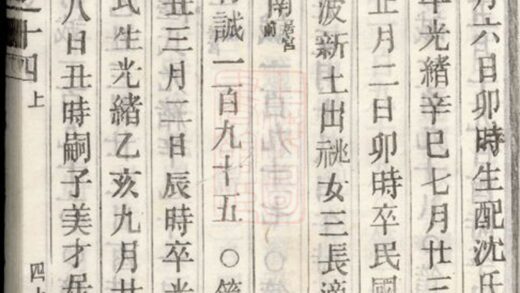 月六日卯時生配沈氏
年光緒辛巳七月廿三
正月二日卯時卒民國
波新土出祧女三長適
南
誠一百九十五 ○第
丑三月三日辰時卒光
氏生光緒乙亥九月廿
八日丑時嗣子美才居
之十四 上 四上